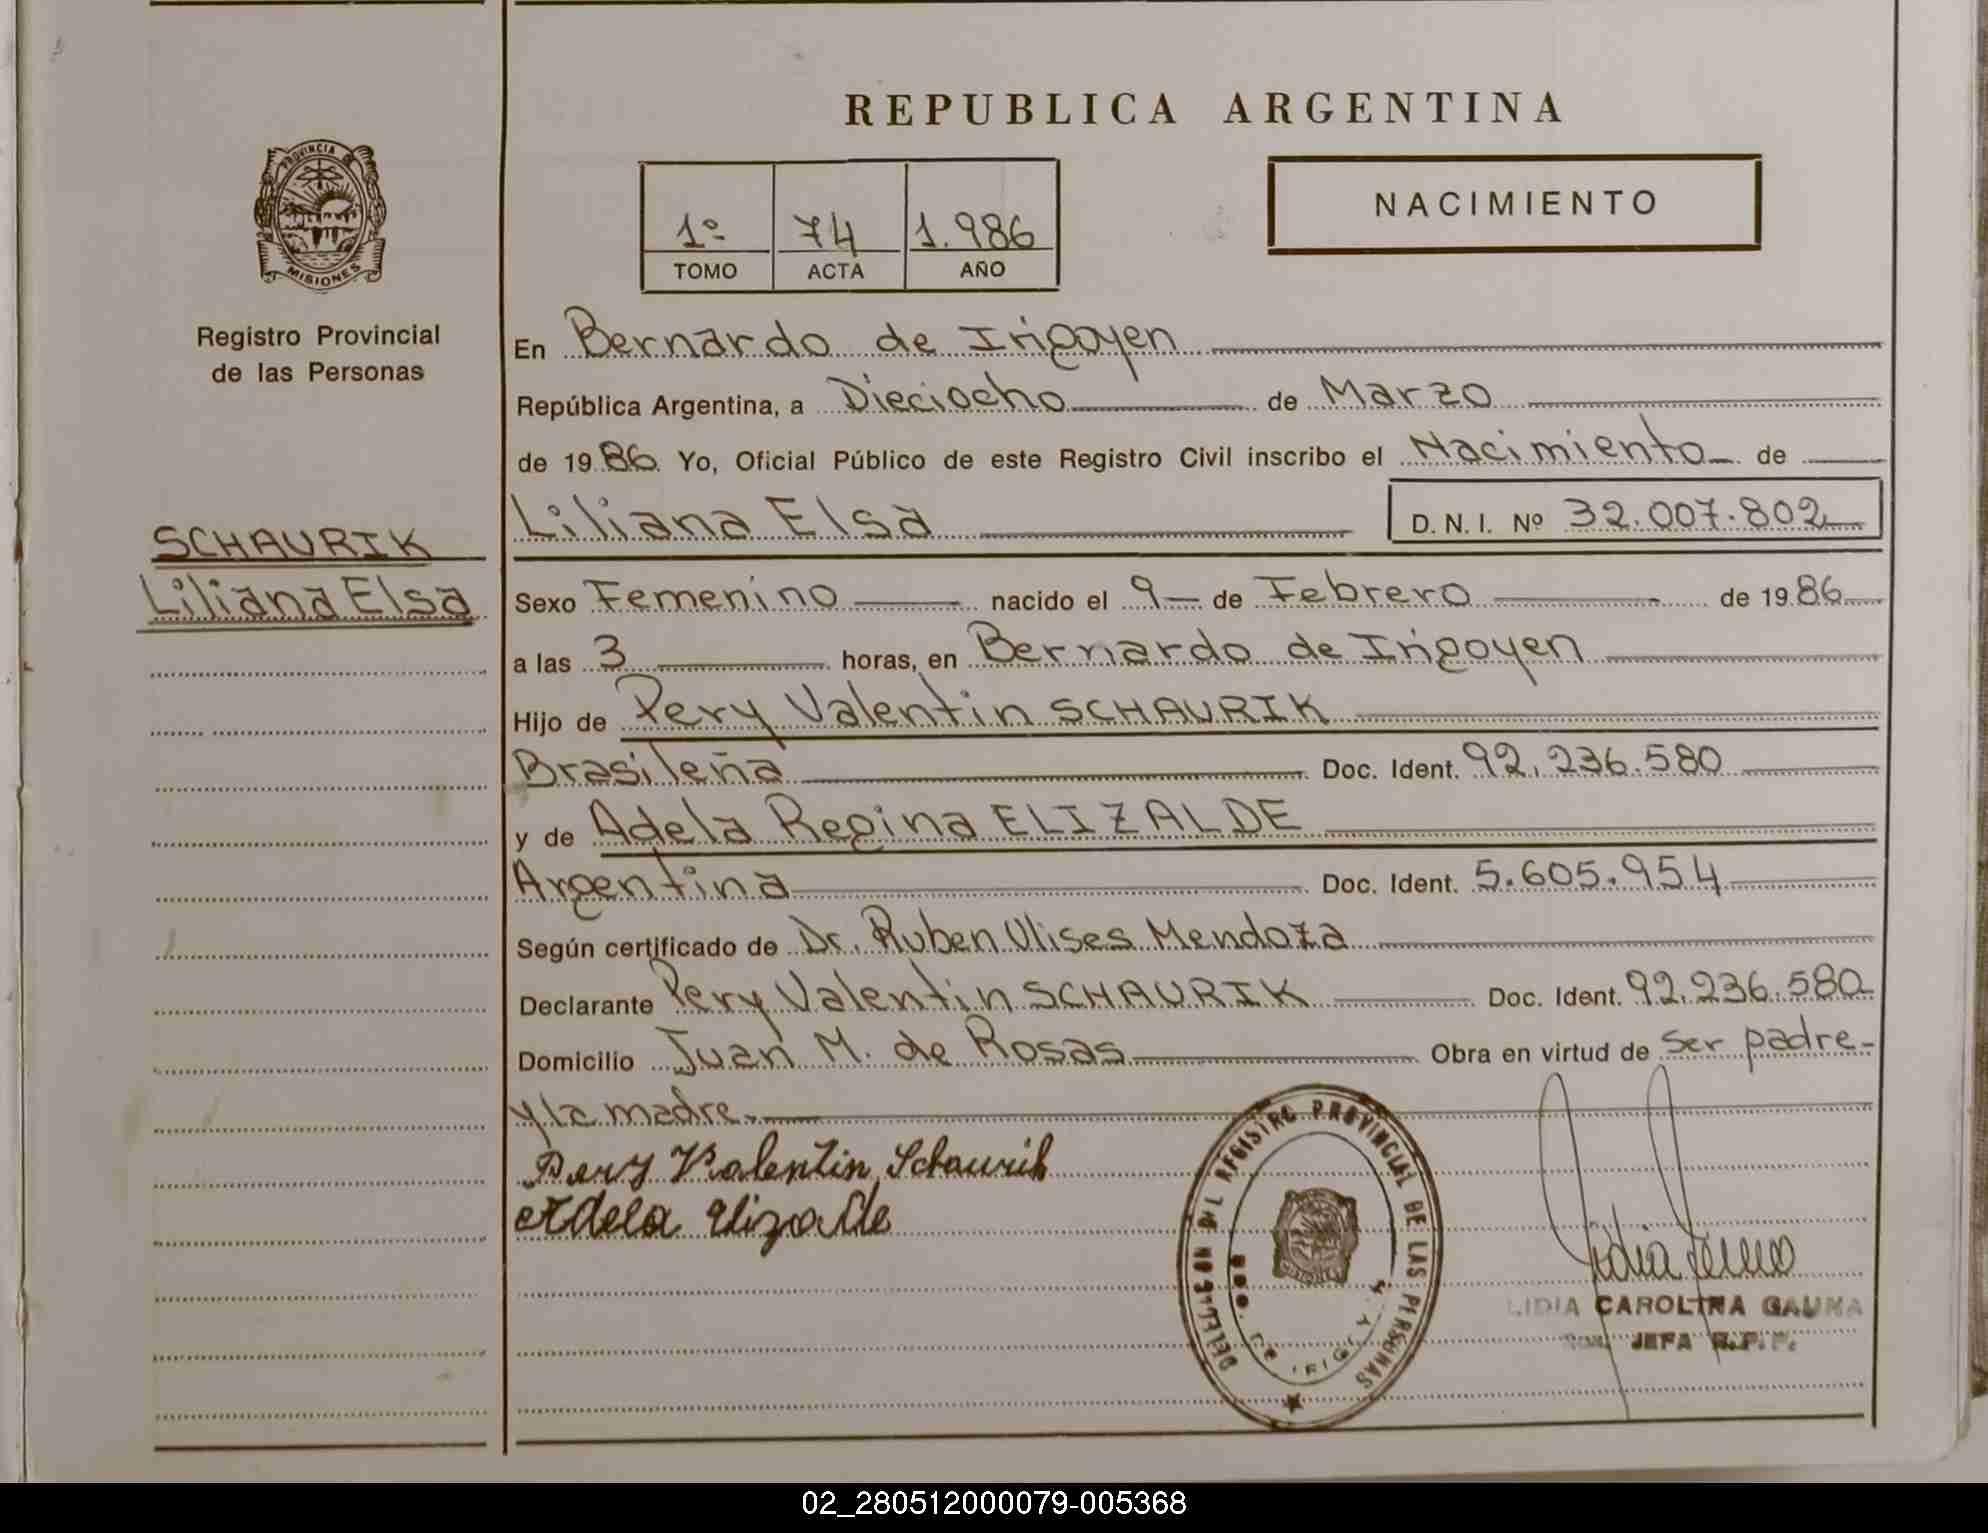 REPUBLICA ARGENTINA
PROVINCIA DE
MISIONES
Registro Provincial
de las Personas
1º 74 1.986
TOMO ACTA AÑO
NACIMIENTO
En Bernardo de Irigoyen
República Argentina, a Dieciocho de Marzo
de 1986 Yo, Oficial Público de este Registro Civil inscribo el Nacimiento de
Liliana Elsa D. N. I. Nº 32.007.802
SCHAURIK
Liliana Elsa
Sexo Femenino nacido el 9 de Febrero de 1986
a las 3 horas, en Bernardo de Irigoyen
Hijo de Pery Valentin SCHAURIK
Brasileña Doc. Ident. 92.236.580
y de Adela Regina ELIZALDE
Argentina Doc. Ident. 5.605.954
Según certificado de Dr. Ruben Ulises Mendoza
Declarante Pery Valentin SCHAURIK Doc. Ident. 92.236.580
Domicilio Juan M. de Rosas Obra en virtud de ser padre-
y la madre.-
Pery Valentin Schaurik
Adela Elizalde
REGISTRO PROVINCIAL DE LAS PERSONAS
LIDIA CAROLINA GAUNA
JEFA R.P.P.
02_280512000079-005368